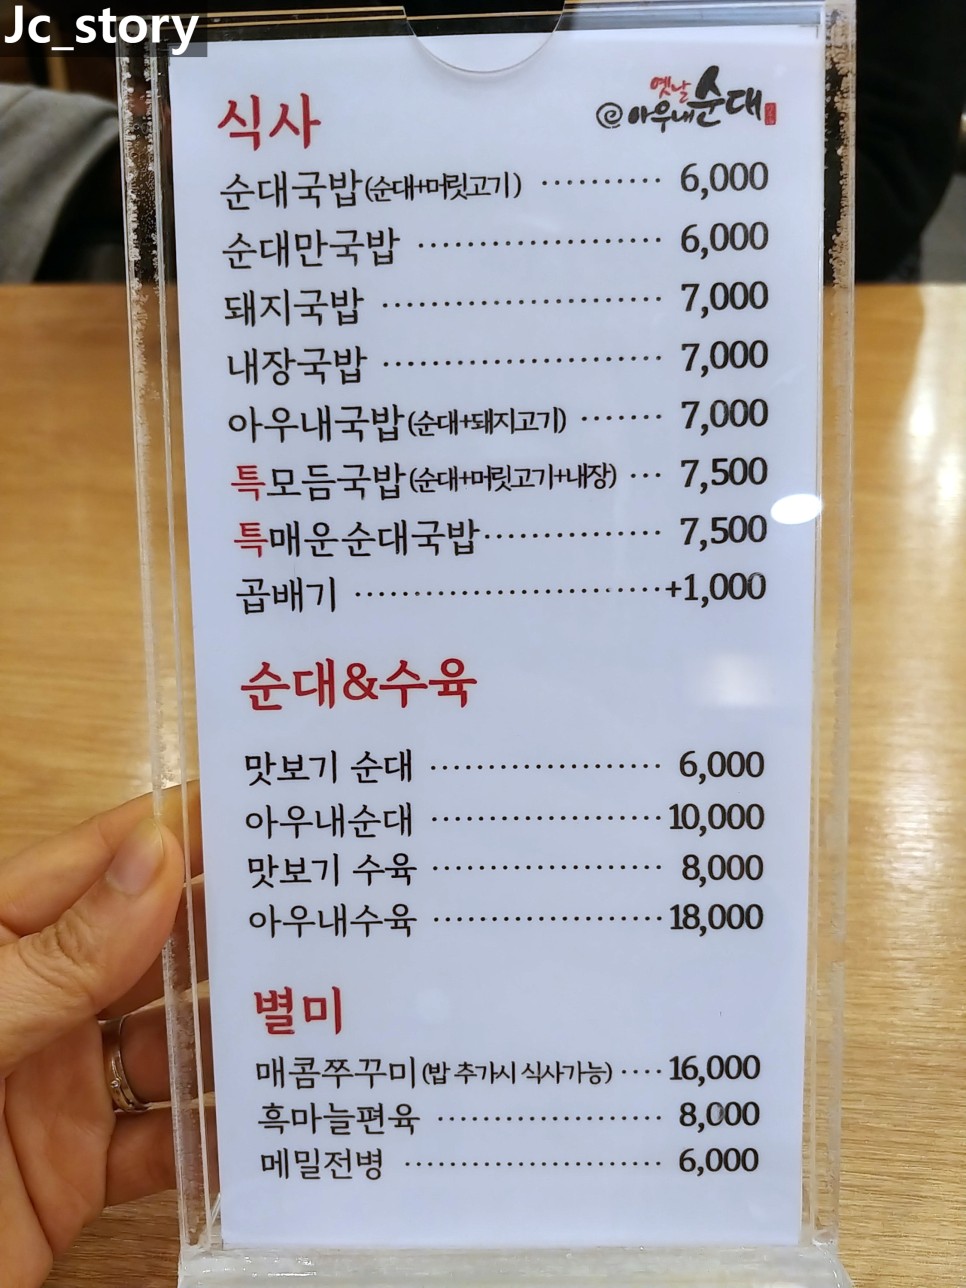 Jc_story
옛날
@아우내순대
식사
순대국밥(순대+머릿고기) ·········· 6,000
순대만국밥 ······················ 6,000
돼지국밥 ························· 7,000
내장국밥 ························· 7,000
아우내국밥(순대+돼지고기) ······· 7,000
특모듬국밥(순대+머릿고기+내장) ··· 7,500
특매운순대국밥················ 7,500
곱배기 ···························+1,000
순대&수육
맛보기 순대 ····················· 6,000
아우내순대 ·····················10,000
맛보기 수육 ····················· 8,000
아우내수육 ·····················18,000
별미
매콤쭈꾸미(밥 추가시 식사가능) ····16,000
흑마늘편육 ···················· 8,000
메밀전병 ······················· 6,000